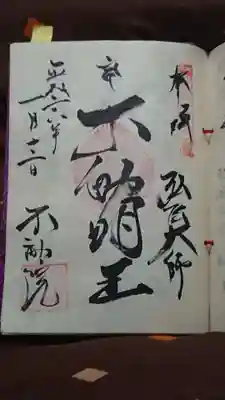 本頭
弘法大師
奉
不動明王
平成二六年
一月十二日
不動院